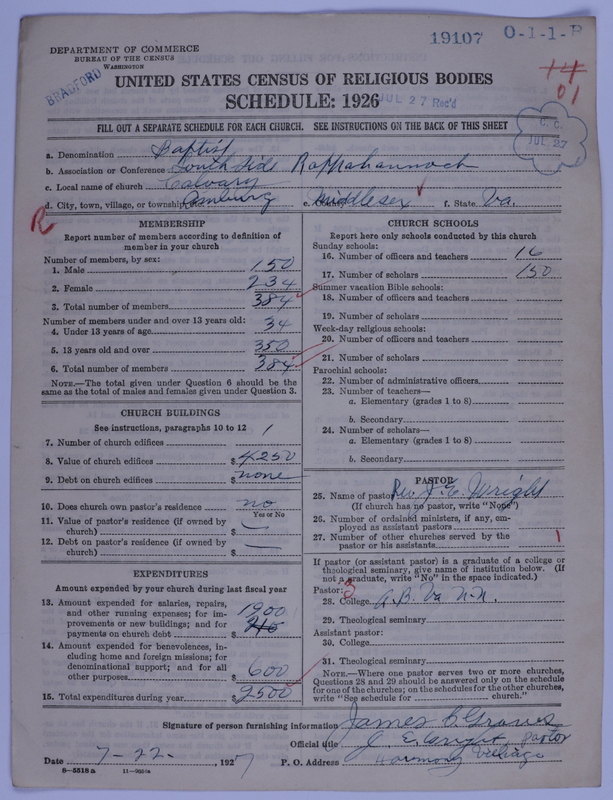 19107 O-1-1-B
DEPARTMENT OF COMMERCE
BUREAU OF THE CENSUS
WASHINGTON
BRADFORD
14
01
UNITED STATES CENSUS OF RELIGIOUS BODIES
SCHEDULE: 1926
JUL 27 Rec'd
FILL OUT A SEPARATE SCHEDULE FOR EACH CHURCH. SEE INSTRUCTIONS ON THE BACK OF THIS SHEET
C. C.
JUL 27
a. Denomination Baptist
b. Association or Conference South Side Rappahannock
c. Local name of church Calvary
d. City, town, village, or township Amburg e. County Middlesex f. State Va.
R
MEMBERSHIP
Report number of members according to definition of member in your church
Number of members, by sex:
1. Male 150
2. Female 234
3. Total number of members 384
Number of members under and over 13 years old:
4. Under 13 years of age 34
5. 13 years old and over 350
6. Total number of members 384
NOTE.—The total given under Question 6 should be the
same as the total of males and females given under Question 3.
CHURCH BUILDINGS
See instructions, paragraphs 10 to 12
7. Number of church edifices 1
8. Value of church edifices $ 4250
9. Debt on church edifices $ none
10. Does church own pastor's residence no
Yes or No
11. Value of pastor's residence (if owned by
church) $ —
12. Debt on pastor's residence (if owned by
church) $ —
EXPENDITURES
Amount expended by your church during last fiscal year
13. Amount expended for salaries, repairs,
and other running expenses; for im-
provements or new buildings; and for
payments on church debt $ 1900
14. Amount expended for benevolences, in-
cluding home and foreign missions; for
denominational support; and for all
other purposes $ 600
15. Total expenditures during year $ 2500
CHURCH SCHOOLS
Report here only schools conducted by this church
Sunday schools:
16. Number of officers and teachers 16
17. Number of scholars 150
Summer vacation Bible schools:
18. Number of officers and teachers
19. Number of scholars
Week-day religious schools:
20. Number of officers and teachers
21. Number of scholars
Parochial schools:
22. Number of administrative officers
23. Number of teachers—
a. Elementary (grades 1 to 8)
b. Secondary
24. Number of scholars—
a. Elementary (grades 1 to 8)
b. Secondary
PASTOR
25. Name of pastor Rev. J. E. Wright
(If church has no pastor, write "None")
26. Number of ordained ministers, if any, em-
ployed as assistant pastors
27. Number of other churches served by the
pastor or his assistants 1
If pastor (or assistant pastor) is a graduate of a college or
theological seminary, give name of institution below. (If
not a graduate, write "No" in the space indicated.)
Pastor: 3
28. College A.B. Va U.
29. Theological seminary
Assistant pastor:
30. College
31. Theological seminary
NOTE.—Where one pastor serves two or more churches,
Questions 28 and 29 should be answered only on the schedule
for one of the churches; on the schedules for the other churches,
write "See schedule for church."
Signature of person furnishing information James C. Graves
Official title J. E. Wright, pastor
Date 7-22-, 1927 P. O. Address Harmony Village
8-5518 a